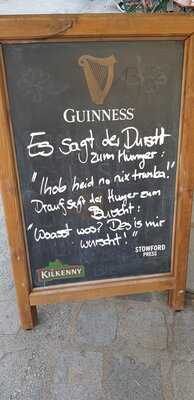 GUINNESS
Es sagt der Durscht
zum Hunger:
"Ihob heid no nix trunka!"
Drauf sagt der Hunger zum
Durscht:
"Woasst wos? Des is mir
wurscht!"
STOWFORD
PRESS
KILKENNY